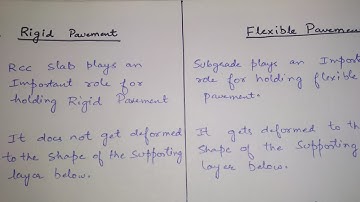 Rigid Pavement
Rcc slab plays an
Important role for
holding Rigid Pavement
It does not get deformed
to the shape of the supporting
layer below.
Flexible Pavemen
Subgeade plays an Import
role for holding flexible
pavement.
It gets deformed to the
Shape of the Supporting
layer below.